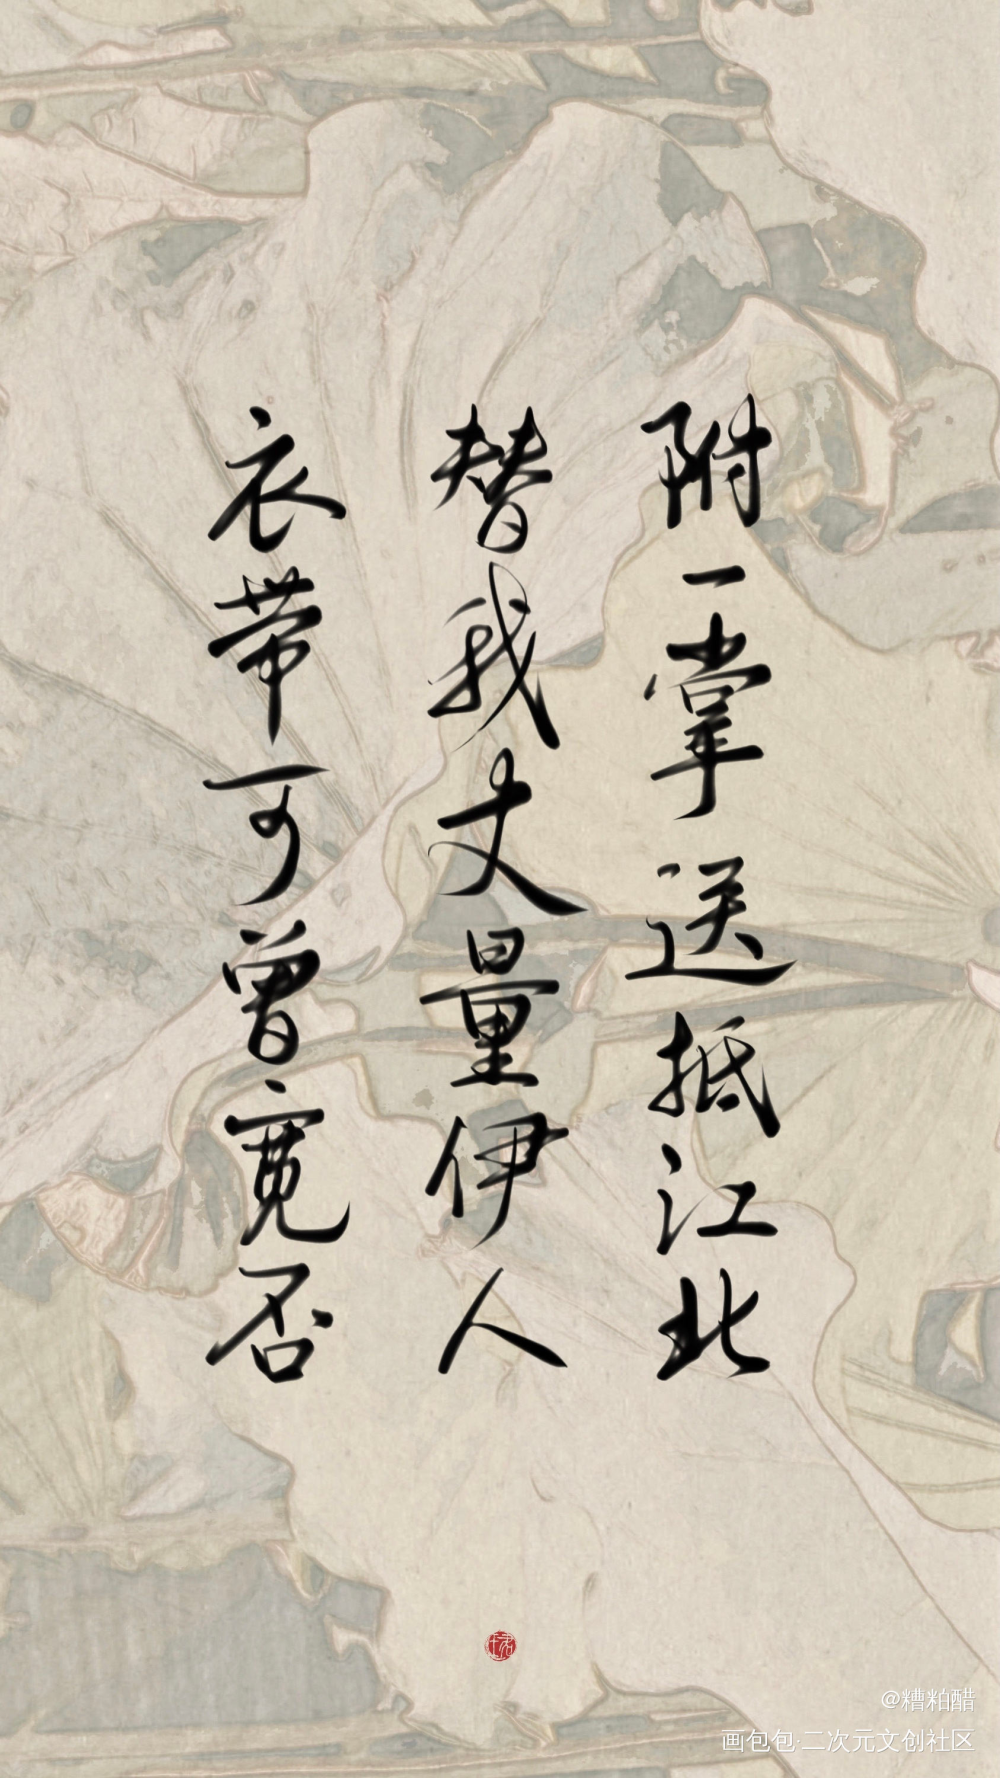 附一掌送抵江北
替我丈量伊人
衣带可曾宽否
@糟粕醋
画包包·二次元文创社区